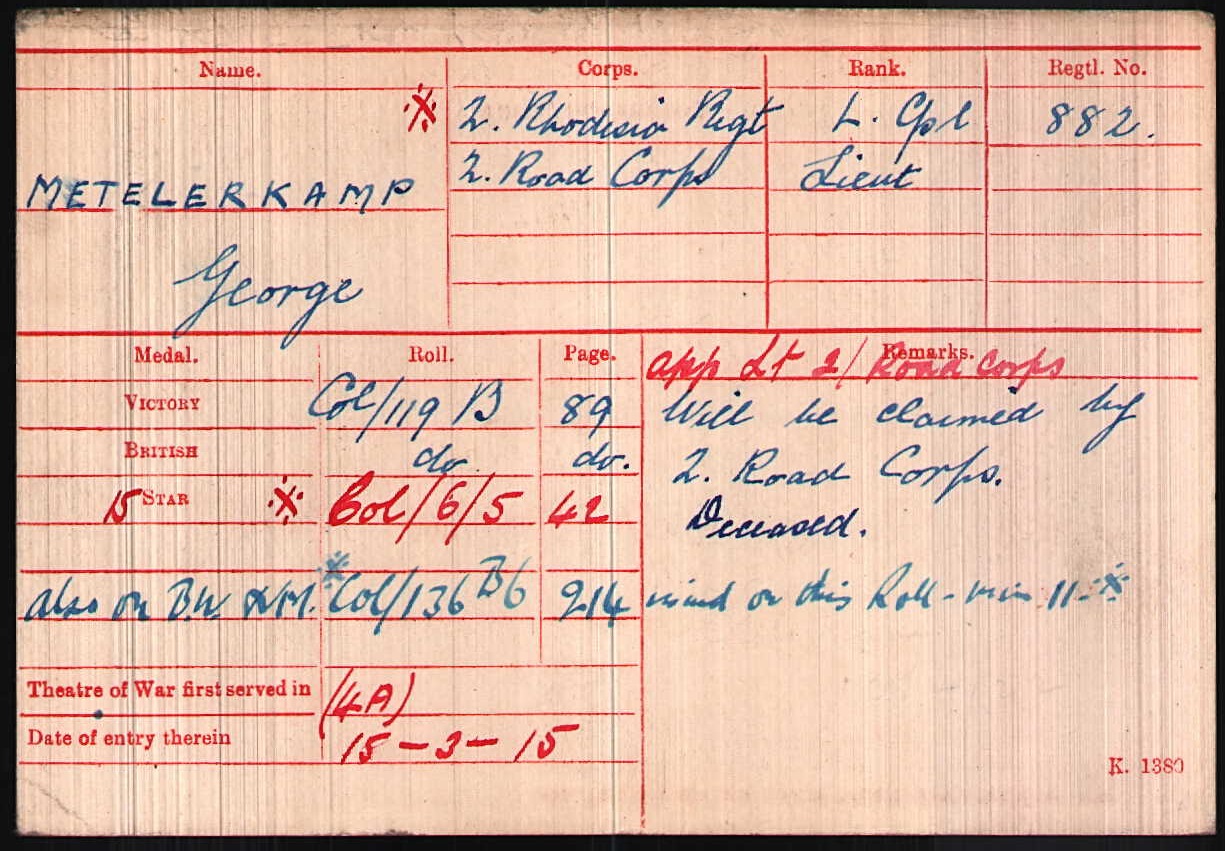 Name. Corps. Rank. Regtl. No.
※ 2. Rhodesia Regt L. Cpl 882.
METELERKAMP 2. Road Corps Lieut
George
Medal. Roll. Page. Remarks.
app Lt 2/ Road Corps
VICTORY Col/119 B 89 Will be claimed by
BRITISH do do. 2. Road Corps.
15 STAR ※ Col/6/5 42 Deceased.
also on BW &VM. ※ Col/136 B6 214 on this Roll - 11-※
Theatre of War first served in (4A)
Date of entry therein 15-3-15
K. 1380